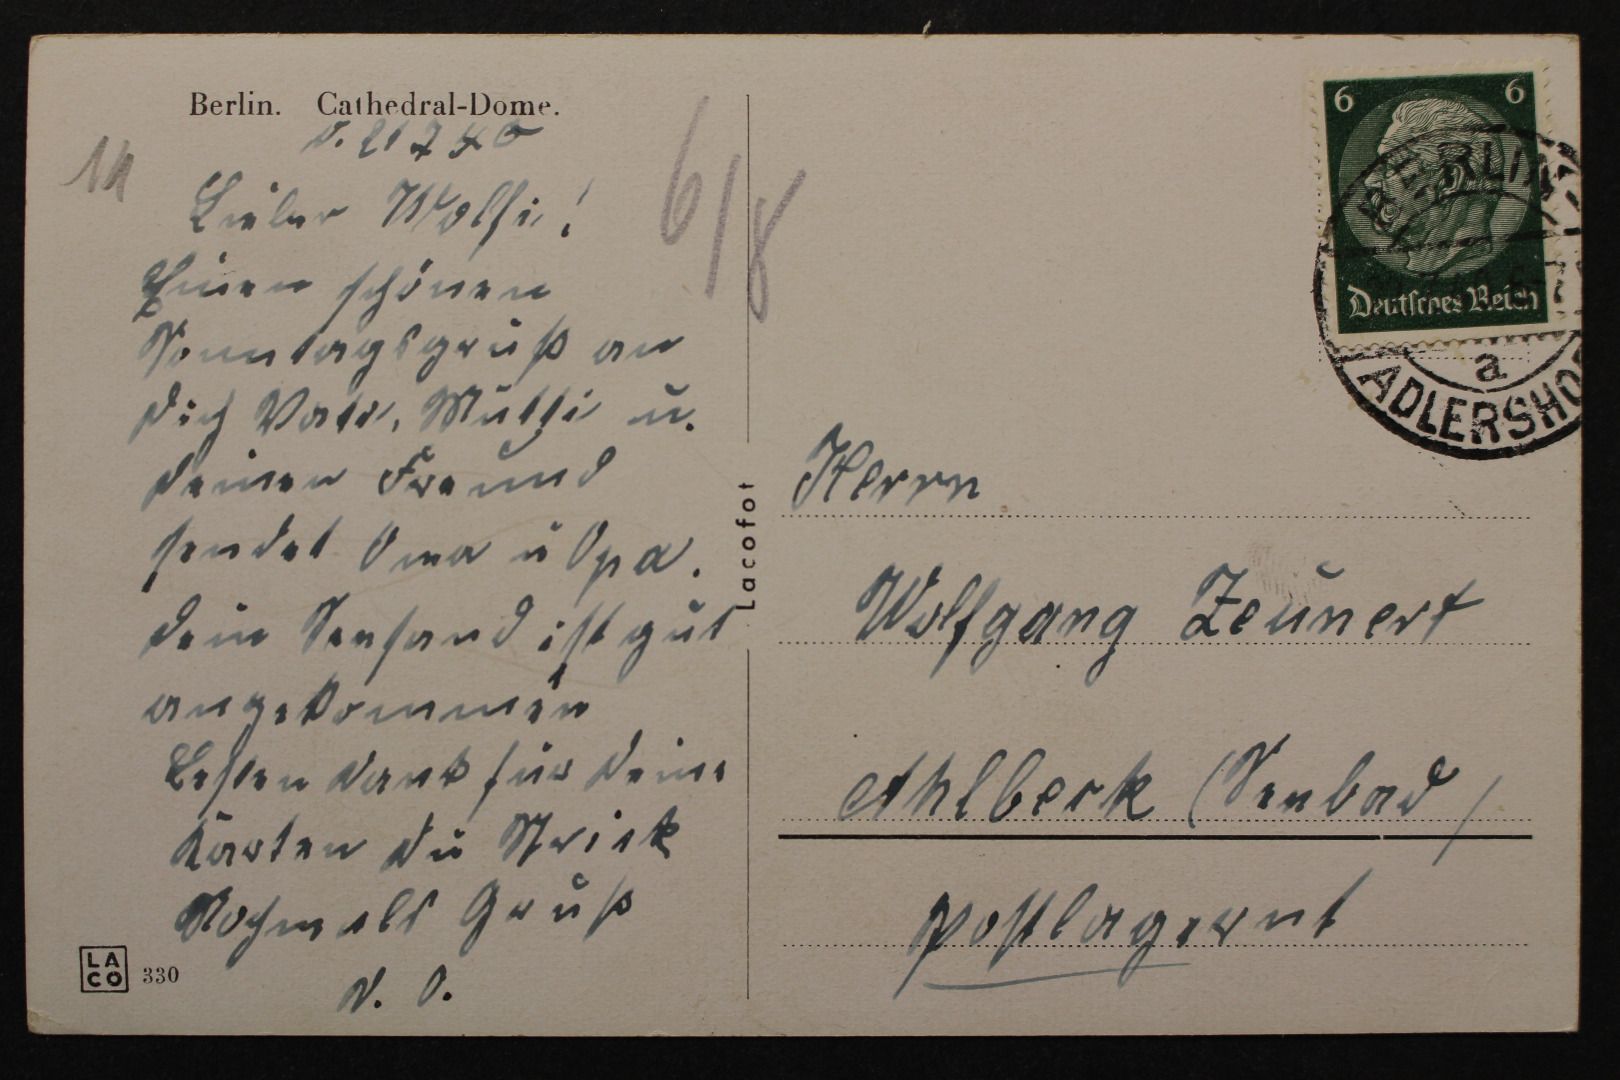 Berlin. Cathedral-Dome.
d. 21 7 40
14
Lieber Wolfi!
Einen schönen
Sonntagsgruß an
Dich Vati, Mutti u.
deinen Freund
sendet Oma u Opa.
dein Versand ist gut
angekommen
Besten Dank für deine
Karten du Strick
Nochmals Gruß
D. O.
6/8
LACO 330
Lacofot
6 6
Deutsches Reich
BERLIN
a
ADLERSHO
Herrn
Wolfgang Zeunert
Ahlbeck (Seebad)
postlagernt